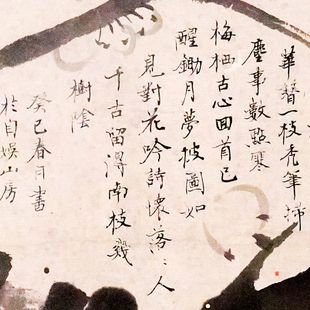 華簪一枝禿筆掃
塵事數點寒
梅栖古心回首已
醒鋤月夢披圖如
見對花吟詩懷落〻人
千古留得南枝幾
樹陰
癸巳春月書
於自娛山房